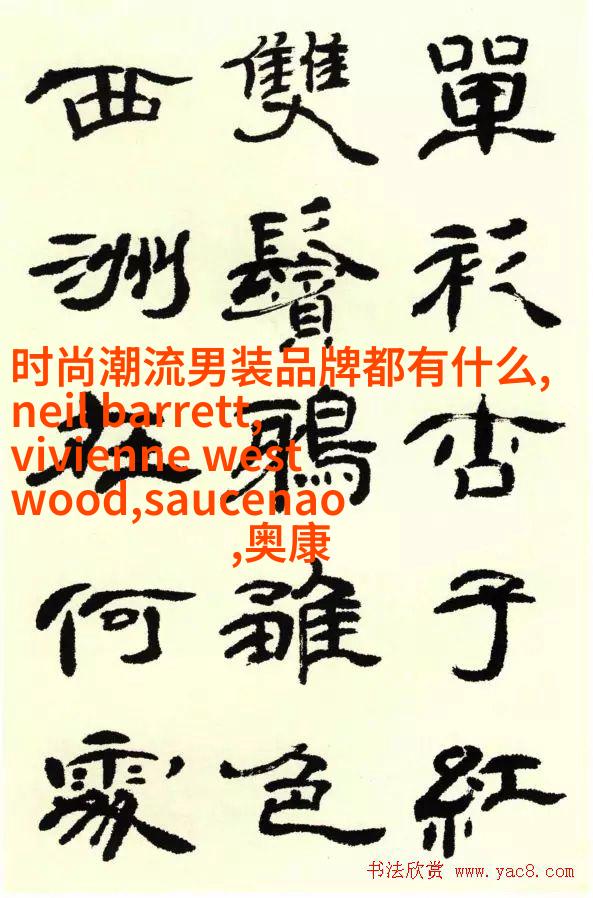 單衫杏子紅
雙鬢鴉雛色
西洲在何處
时尚潮流男装品牌都有什么,
neil barrett,
vivienne west
wood,saucenao
,奥康
书法欣赏 www.yac8.com